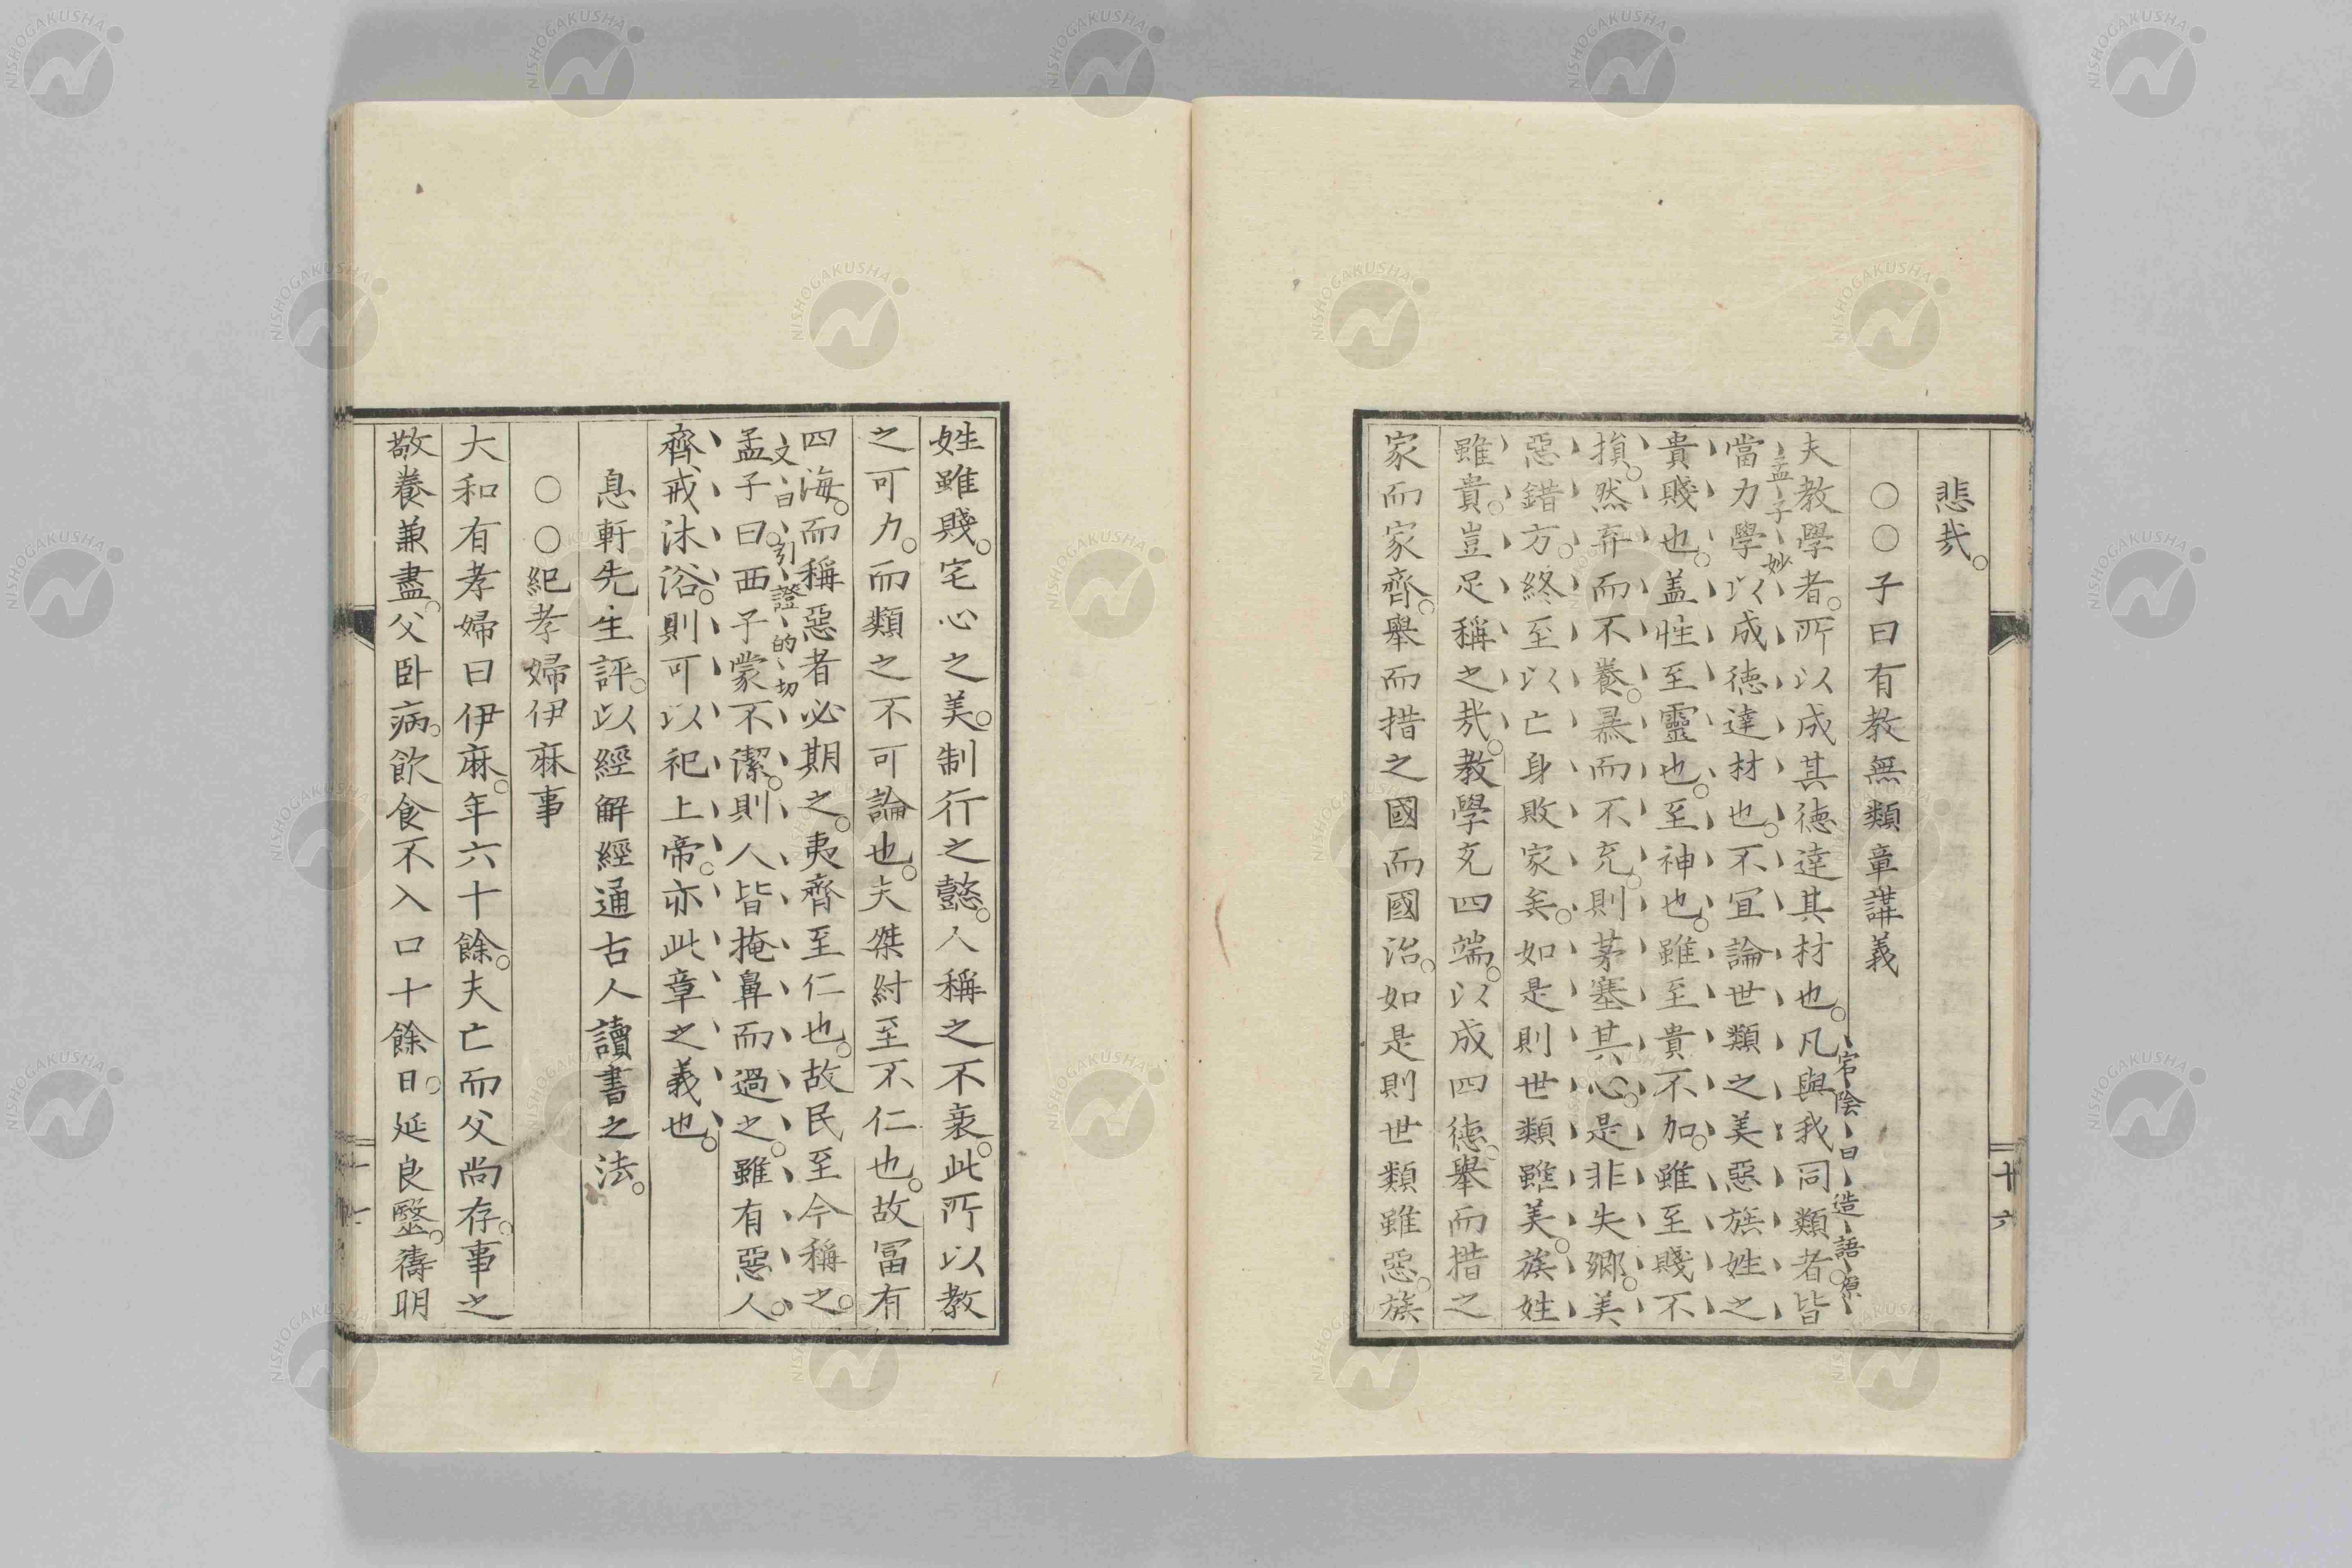 悲哉。
○○子曰有教無類章講義
夫教學者。所以成其德達其材也。凡與我同類者。皆
宕陰曰造語原
孟子妙
當力學以成德達材也。不宜論世類之美惡族姓之
貴賤也。蓋性至靈也。至神也。雖至貴不加。雖至賤不
損。然弃而不養。㬥而不充。則茅塞其心。是非失鄉。美
惡錯方。終至以亡身敗家矣。如是則世類雖美。族姓
雖貴。豈足稱之哉。教學充四端。以成四德。舉而措之
家而家齊。舉而措之國而國治。如是則世類雖惡。族
十六
姓雖賤。宅心之美。制行之懿。人稱之不衰。此所以教
之可力。而類之不可論也。夫桀紂至不仁也。故冨有
四海。而稱惡者必期之。夷齊至仁也。故民至今稱之。
文曰引證的切
孟子曰。西子蒙不潔。則人皆掩鼻而過之。雖有惡人。
齊戒沐浴。則可以祀上帝。亦此章之義也。
息軒先生評。以經解經通古人讀書之法。
○○紀孝婦伊麻事
大和有孝婦曰伊麻。年六十餘。夫亡而父尚存。事之
敬養兼盡。父卧病。飲食不入口十餘日。延良毉。禱明